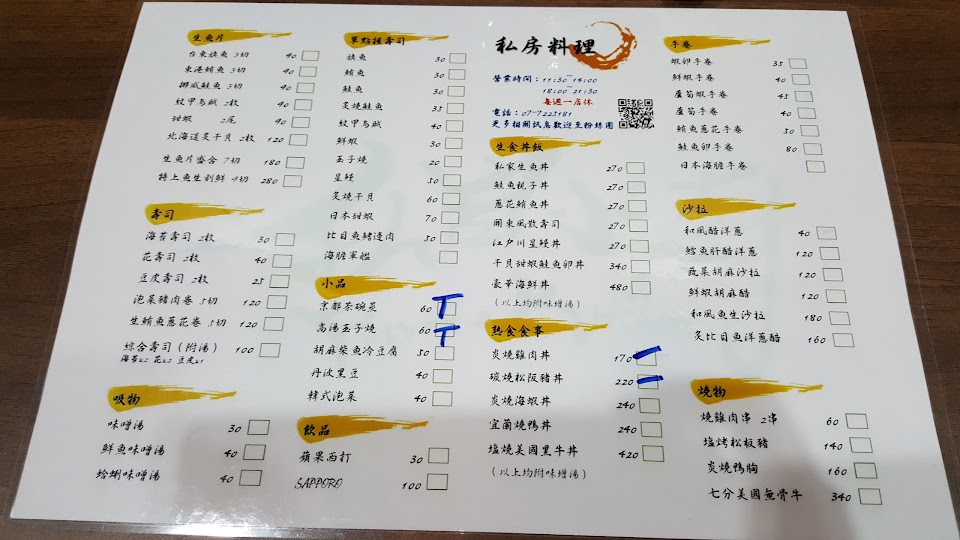 生魚片
台東旗魚 3切 40
東港鮪魚 3切 40
挪威鮭魚 3切 40
紋甲烏賊 2枚 40
甜蝦 2尾 40
北海道炙干貝 2枚 120
生魚片盛合 7切 180
特上魚生刺鮮 9切 280
壽司
海苔壽司 2枚 30
花壽司 2枚 40
豆皮壽司 2枚 25
泡菜豬肉卷 5切 120
生鮪魚蔥花卷 5切 120
綜合壽司(附湯) 100
海苔x2 花x2 豆皮x1
吸物
味噌湯 30
鮮魚味噌湯 40
蛤蜊味噌湯 40
單點握壽司
旗魚 30
鮪魚 30
鮭魚 30
炙燒鮭魚 35
紋甲烏賊 40
鮮蝦 30
玉子燒 20
星鰻 50
炙燒干貝 60
日本甜蝦 70
比目魚鰭邊肉 50
海膽軍艦
小品
京都茶碗蒸 60 T
高湯玉子燒 60 T
胡麻柴魚冷豆腐 50
丹波黑豆 40
韓式泡菜 40
飲品
蘋果西打 30
SAPPORO 100
私房料理
營業時間:11:30~14:00
18:00~21:30
每週一店休
電話:07-7225181
更多相關訊息歡迎至粉絲團
生食丼飯
私家生魚丼 270
鮭魚親子丼 270
蔥花鮪魚丼 270
關東風散壽司 270
江戶川星鰻丼 270
干貝甜蝦鮭魚卵丼 340
豪華海鮮丼 480
(以上均附味增湯)
熱食食事
炭燒雞肉丼 170
碳燒松阪豬丼 220
炭燒海蝦丼 240
宜蘭燒鴨丼 240
塩燒美國黑牛丼 420
(以上均附味增湯)
手卷
蝦卵手卷 35
鮮蝦手卷 40
蘆筍蝦手卷 45
蘆筍手卷 40
鮪魚蔥花手卷 50
鮭魚卵手卷 80
日本海膽手卷
沙拉
和風醋洋蔥 40
鱈魚肝醋洋蔥 120
蔬菜胡麻沙拉 120
鮮蝦胡麻醋 120
和風魚生沙拉 180
炙比目魚洋蔥醋 160
燒物
燒雞肉串 2串 60
塩烤松板豬 140
炭燒鴨胸 160
七分美國無骨牛 340